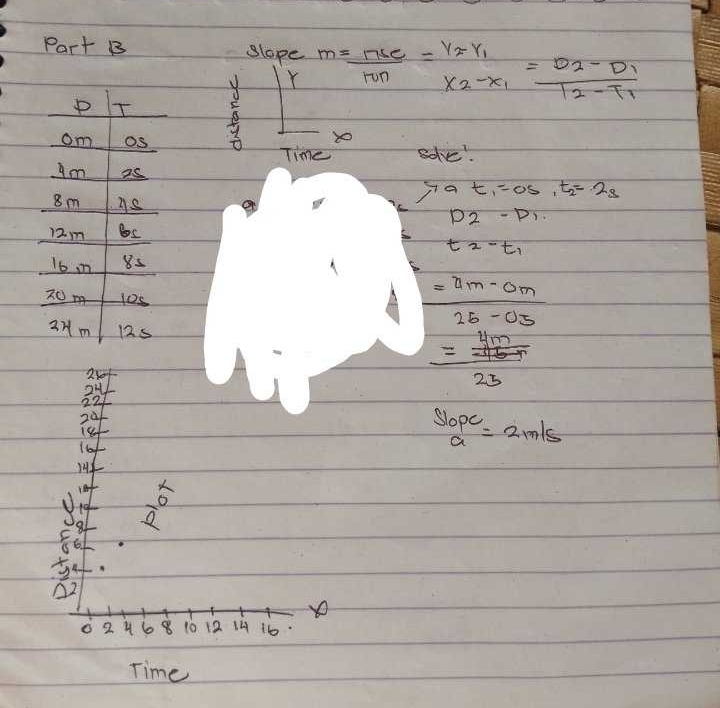 Part B
Slope m = rise/run = Y2-Y1/X2-X1 = D2-D1/T2-T1
Y
distance
Time
D T
0m 0s
4m 2s
8m 4s
12m 6s
16m 8s
20m 10s
24m 12s
solve:
a t1=0s, t2=2s
D2 - D1.
t2-t1
= 4m-0m
2s-0s
= 4m
2s
Slope a = 2m/s
26
24
22
20
18
16
14
8
6
4
2
Distance
plot
0 2 4 6 8 10 12 14 16.
Time